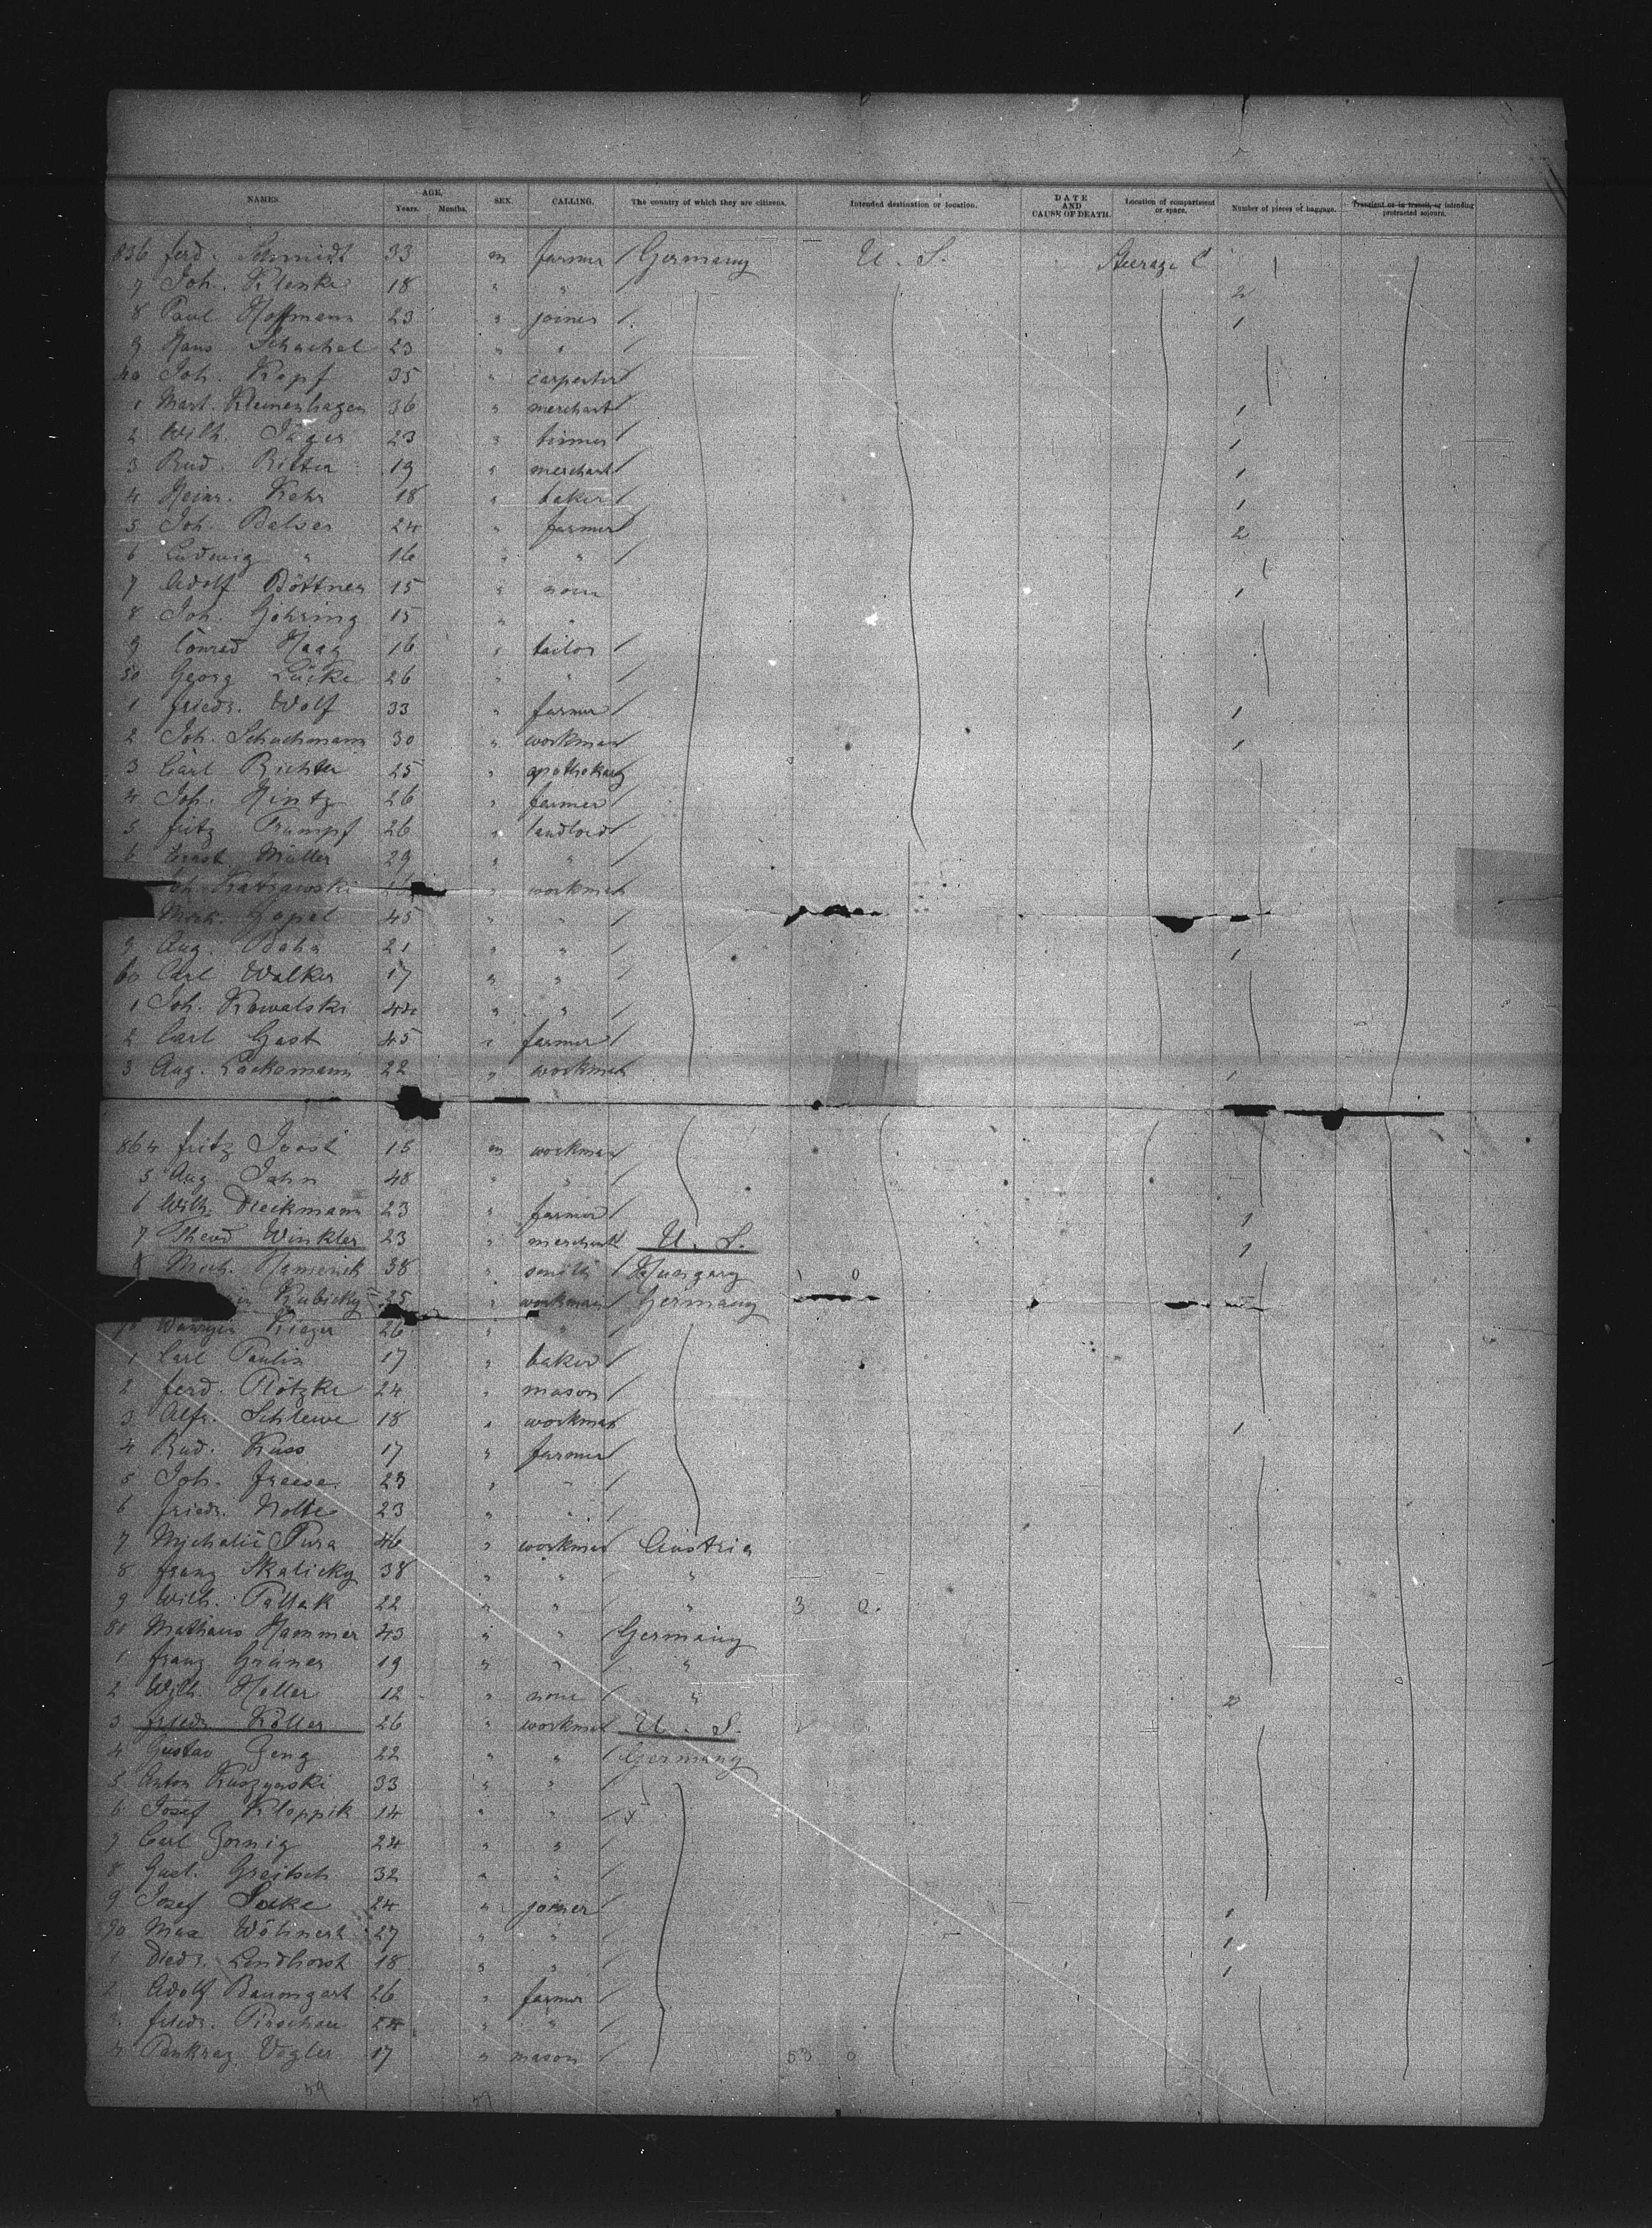 NAMES. AGE. Years. Months. SEX. CALLING. The country of which they are citizens. Intended destination or location. DATE AND CAUSE OF DEATH. Location of compartment or space. Number of pieces of baggage. Transient or in transit, or intending protracted sojourn.
836 Ferd. Schmidt 33 m farmer / Germany U. S. Steerage C 1
7 Joh. Klenke 18 " " / 2
8 Paul Hoffmann 23 " joiner / 1
9 Hans Schachel 23 " " /
40 Joh. Kopf 35 " carpenter /
1 Mart. Kleinenhagen 36 " merchant / 1
2 Wilh. Jäger 23 " tinner / 1
3 Rud. Ritter 19 " merchant / 1
4 Heinr. Kehr 18 " baker / 1
5 Joh. Balser 24 " farmer / 2
6 Ludwig " 16 " " /
7 Adolf Böttner 15 " none 1
8 Joh. Göhring 15 " "
9 Conrad Haag 16 " tailor /
50 Georg Lücke 26 " " /
1 Friedr. Wolf 33 " farmer / 1
2 Joh. Schuchmann 30 " workman 1
3 Carl Richter 25 " apothekary
4 Joh. Hintz 26 " farmer /
5 Fritz Trumpf 26 " landlord /
6 Ernst Müller 29 " " /
Joh. Katrawski " workman
Gopel 45 " " /
9 Aug. 21 " " / 1
60 Carl Walker 17 " " /
1 Joh. Kowalski 44 " " /
2 Carl Gast 45 " farmer /
3 Aug. Lackomann 22 " workman 1
864 Fritz Joost 15 m workman
5 Aug. Jahn 48 " " /
6 Wilh. Dieckmann 23 " farmer / 1
7 Theod Winkler 23 " merchant U. S. 1
38 " smith / Hungary 1 0
Kubicky 25 " workman / Germany
70 Kieger 26 " " /
1 Carl Paulin 17 " baker /
2 Ferd. Plötzke 24 " mason /
3 Alfr. Schlewe 18 " workman 1
4 Rud. Kuss 17 " farmer /
5 Joh. Freese 23 " " /
6 Friedr. Nolte 23 " " /
7 Pura 46 " workman Austria
8 Franz Skalicky 38 " " / "
9 Wilh. Pollak 22 " " / " 3 0.
80 Mathäus Hammer 43 " " / Germany
1 Franz Gruner 19 " " / "
2 Wilh. Heller 12 " none / " 2
3 Friedr. Köller 26 " workman U. S.
4 Gustav Zeng 22 " " / Germany
5 Anton 33 " " /
6 Josef Kloppik 14 " " / x
7 Carl Zornig 24 " " /
8 Gust. Greitsch 32 " " /
9 Josef 24 " joiner / 1
90 Max Wöhnert 27 " " / 1
1 Diedr. Lindhorst 18 " " / 1
2 Adolf Baumgart 26 " farmer /
3 Friedr. Pirschau 24 " " /
4 Pankraz Vogler 17 " mason / 53 0
59 57